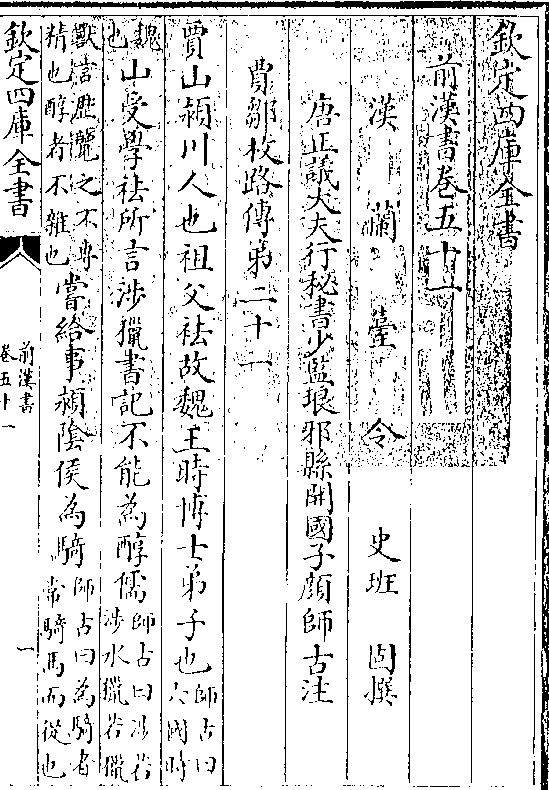 欽定四庫全書
前漢書卷五十一
漢蘭臺令史班固撰
唐正議大夫行秘書少監琅邪縣開國子顔師古注
賈鄒枚路傳第二十一
賈山潁川人也祖父袪故魏王時博士弟子也師古曰六國時
魏也山受學袪所言涉獵書記不能為醇儒師古曰涉若涉水獵若獵
獸言歴覽之不專精也醇者不雜也嘗給事潁隂侯為騎師古曰為騎者常騎馬而從也
欽定四庫全書
前漢書
卷五十一
一